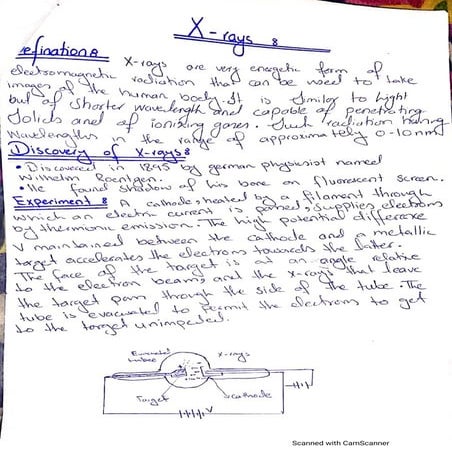 X-rays :
Definition :
X-rays are very energetic form of
electromagnetic radiation that can be used to take
images of the human body. It is similar to light
but of shorter wavelength and capable of penetrating
solids and of ionizing gases. Such radiation having
wavelengths in the range of approximately 0-10nm
Discovery of X-rays :
• Discovered in 1895 by german physicist named
Wilhelm Roentgen.
• He found shadow of his bone on fluorescent screen.
Experiment : A cathode, heated by a filament through
which an electric current is passed, supplies electrons
by thermionic emission. The high potential difference
V maintained between the cathode and a metallic
target accelerates the electrons towards the latter.
The face of the target is at an angle relative
to the electron beam, and the x-rays that leave
the target pass through the side of the tube. The
tube is evacuated to permit the electrons to get
to the target unimpeded.
Evacuated X-rays
tube
Target cathode
V
Scanned with CamScanner